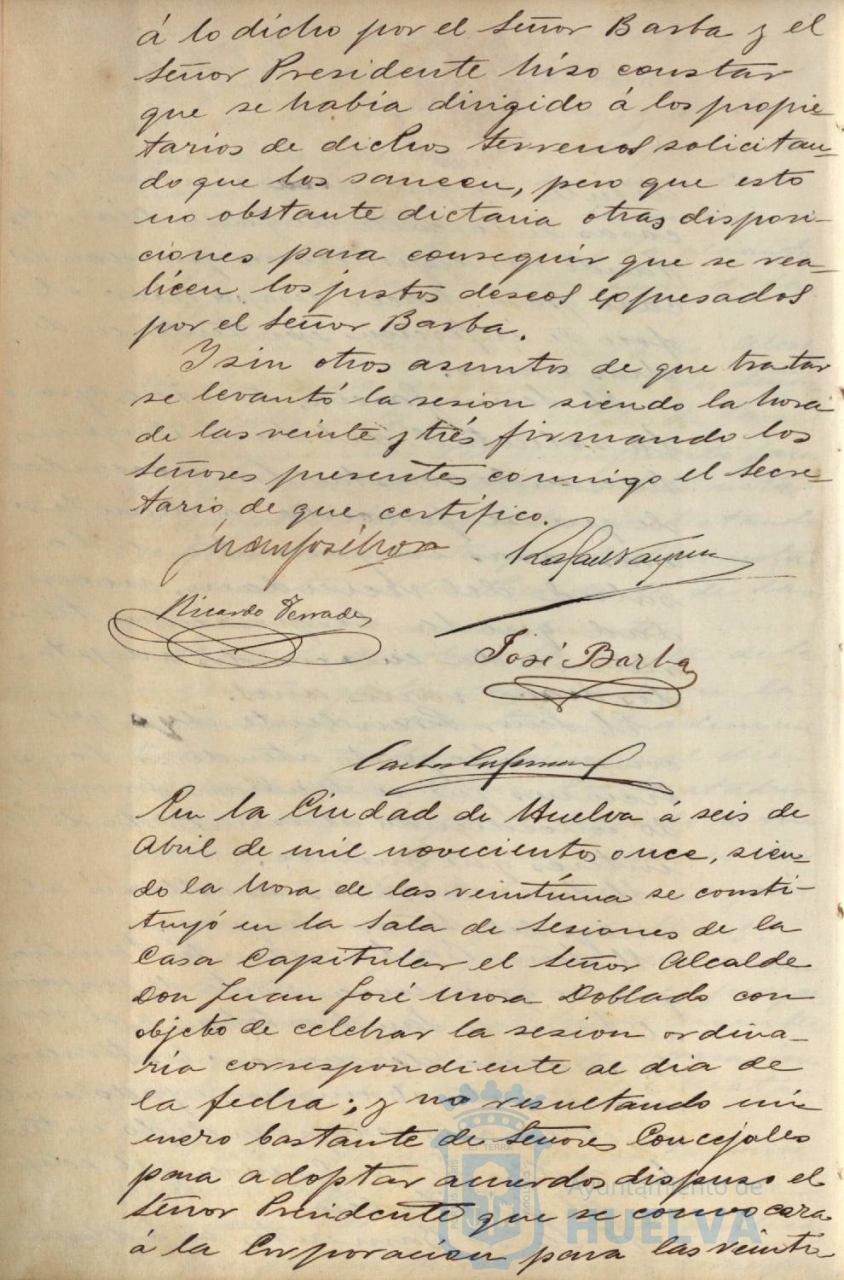 á lo dicho por el Señor Barba y el
Señor Presidente hiso constar
que se habia dirigido á los propie-
tarios de dichos terrenos solicitan-
do que los saneen, pero que esto
no obstante dictaria otras disposi-
ciones para conseguir que se rea-
licen los justos deseos expesados
por el Señor Barba.
Y sin otros asuntos de que tratar
se levantó la sesion siendo la hora
de las veinte y trés firmando los
Señores presentes conmigo el Secre-
tario, de que certifico.
Juan José Mora
Rafael Vazquez
Ricardo Terrades
José Barba
En la Ciudad de Huelva á seis de
Abril de mil novecientos once, sien-
do la hora de las veintiuna se consti-
tuyó en la Sala de Sesiones de la
Casa Capitular el Señor Alcalde
Don Juan José Mora Doblado con
objeto de celebrar la sesion ordina-
ria correspondiente al dia de
la fecha; y no resultando nú-
mero bastante de Señores Concejales
para adoptar acuerdos dispuso el
Señor Presidente que se convocara
á la Corporacion para las veinti-
Ayuntamiento de
HUELVA